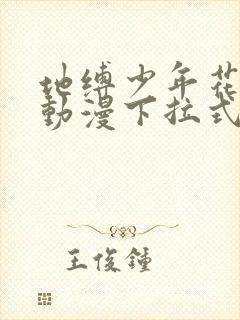 地缚少年花
動漫下拉式
王俊鍾